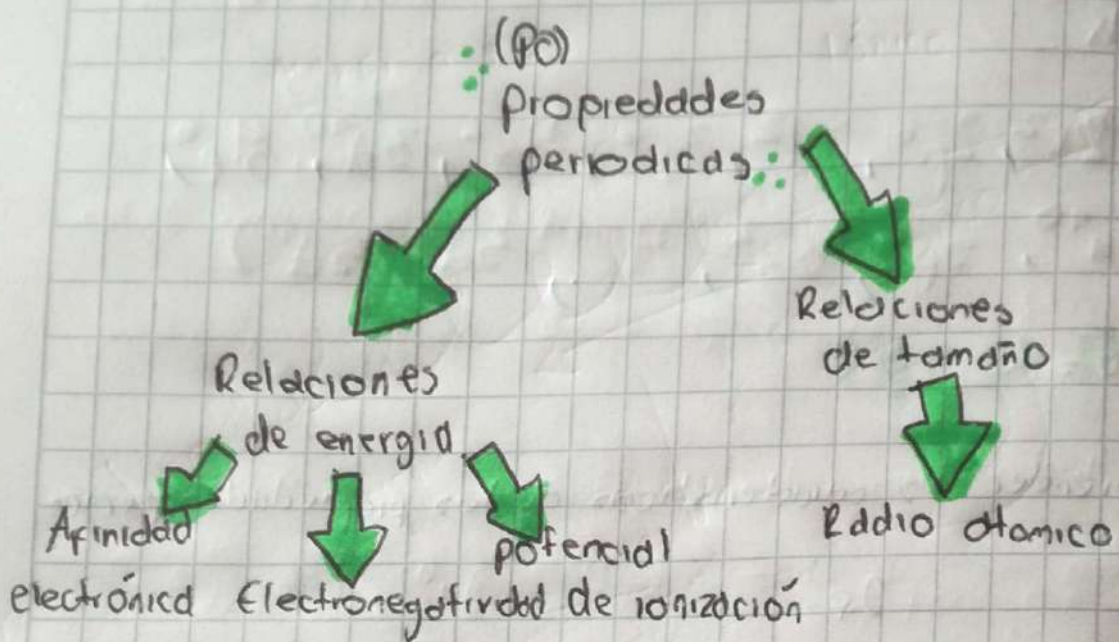 (PO)
propiedades
periodicas
Relaciones
de energia
Relaciones
de tamaño
Afinidad
electrónica
Electronegatividad
potencial
de ionización
Radio atomico